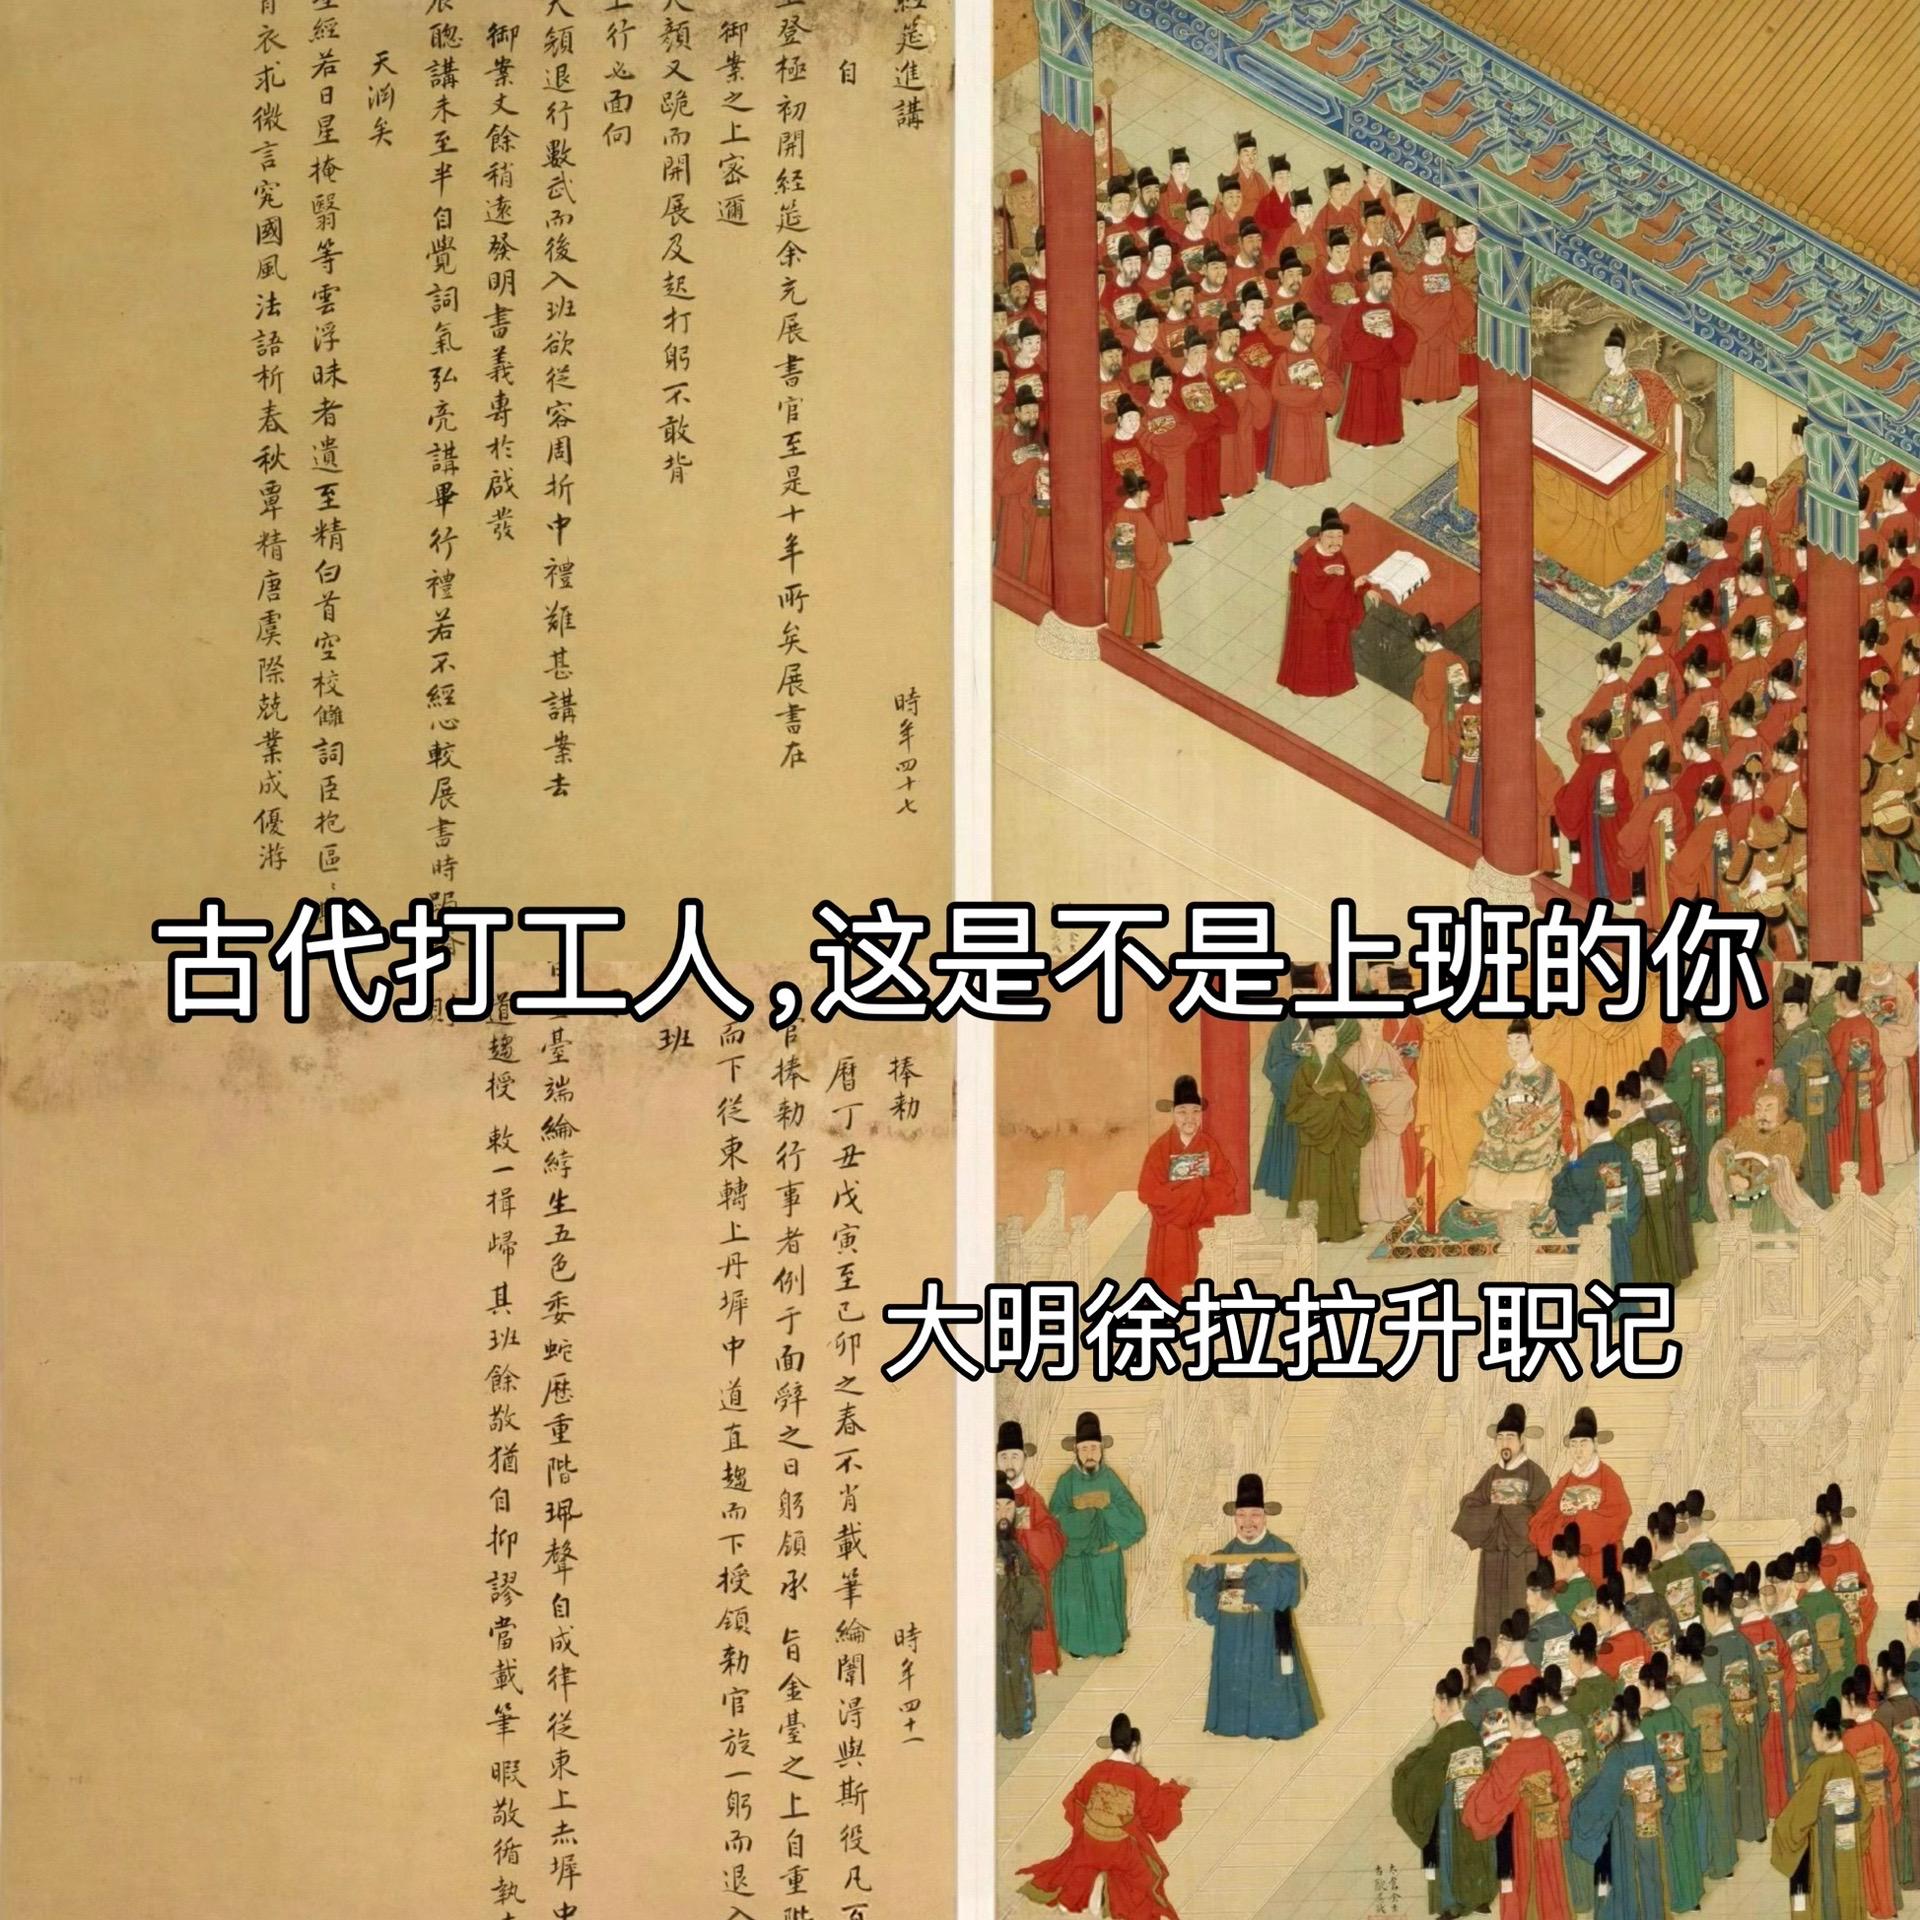 經筵進講
時年四十七
自
登極初開経筵余充展書官至是十年所矣展書在
御案之上密邇
天顔又跪而開展及起打躬不敢背
上行必面向
天顔退行數武而後入班欲從容周折中禮難甚講案去
御案丈餘稍遠發明書義專於啟發
宸聰講未至半自覺詞氣弘亮講畢行禮若不經心較展書時
天淵矣
聖經若日星掩翳等雲浮昧者遺至精白首空校雠詞臣抱區
宵衣求微言究國風法語析春秋覃精唐虞際兢業成優游
古代打工人,这是不是上班的你
捧勅
時年四十一
曆丁丑戊寅至己卯之春不肖載筆綸闈得與斯役凡
官捧勅行事者例于面辭之日躬領承 旨金臺之上自重
而下從東轉上丹墀中道直趨而下授領勅官旋一躬而退入
班
臺端綸綍生五色委蛇歷重階珮聲自成律從東上丹墀中
道趨授 敕一揖歸其班餘敬猶自抑謬當載筆暇敬循執
大明徐拉拉升职记